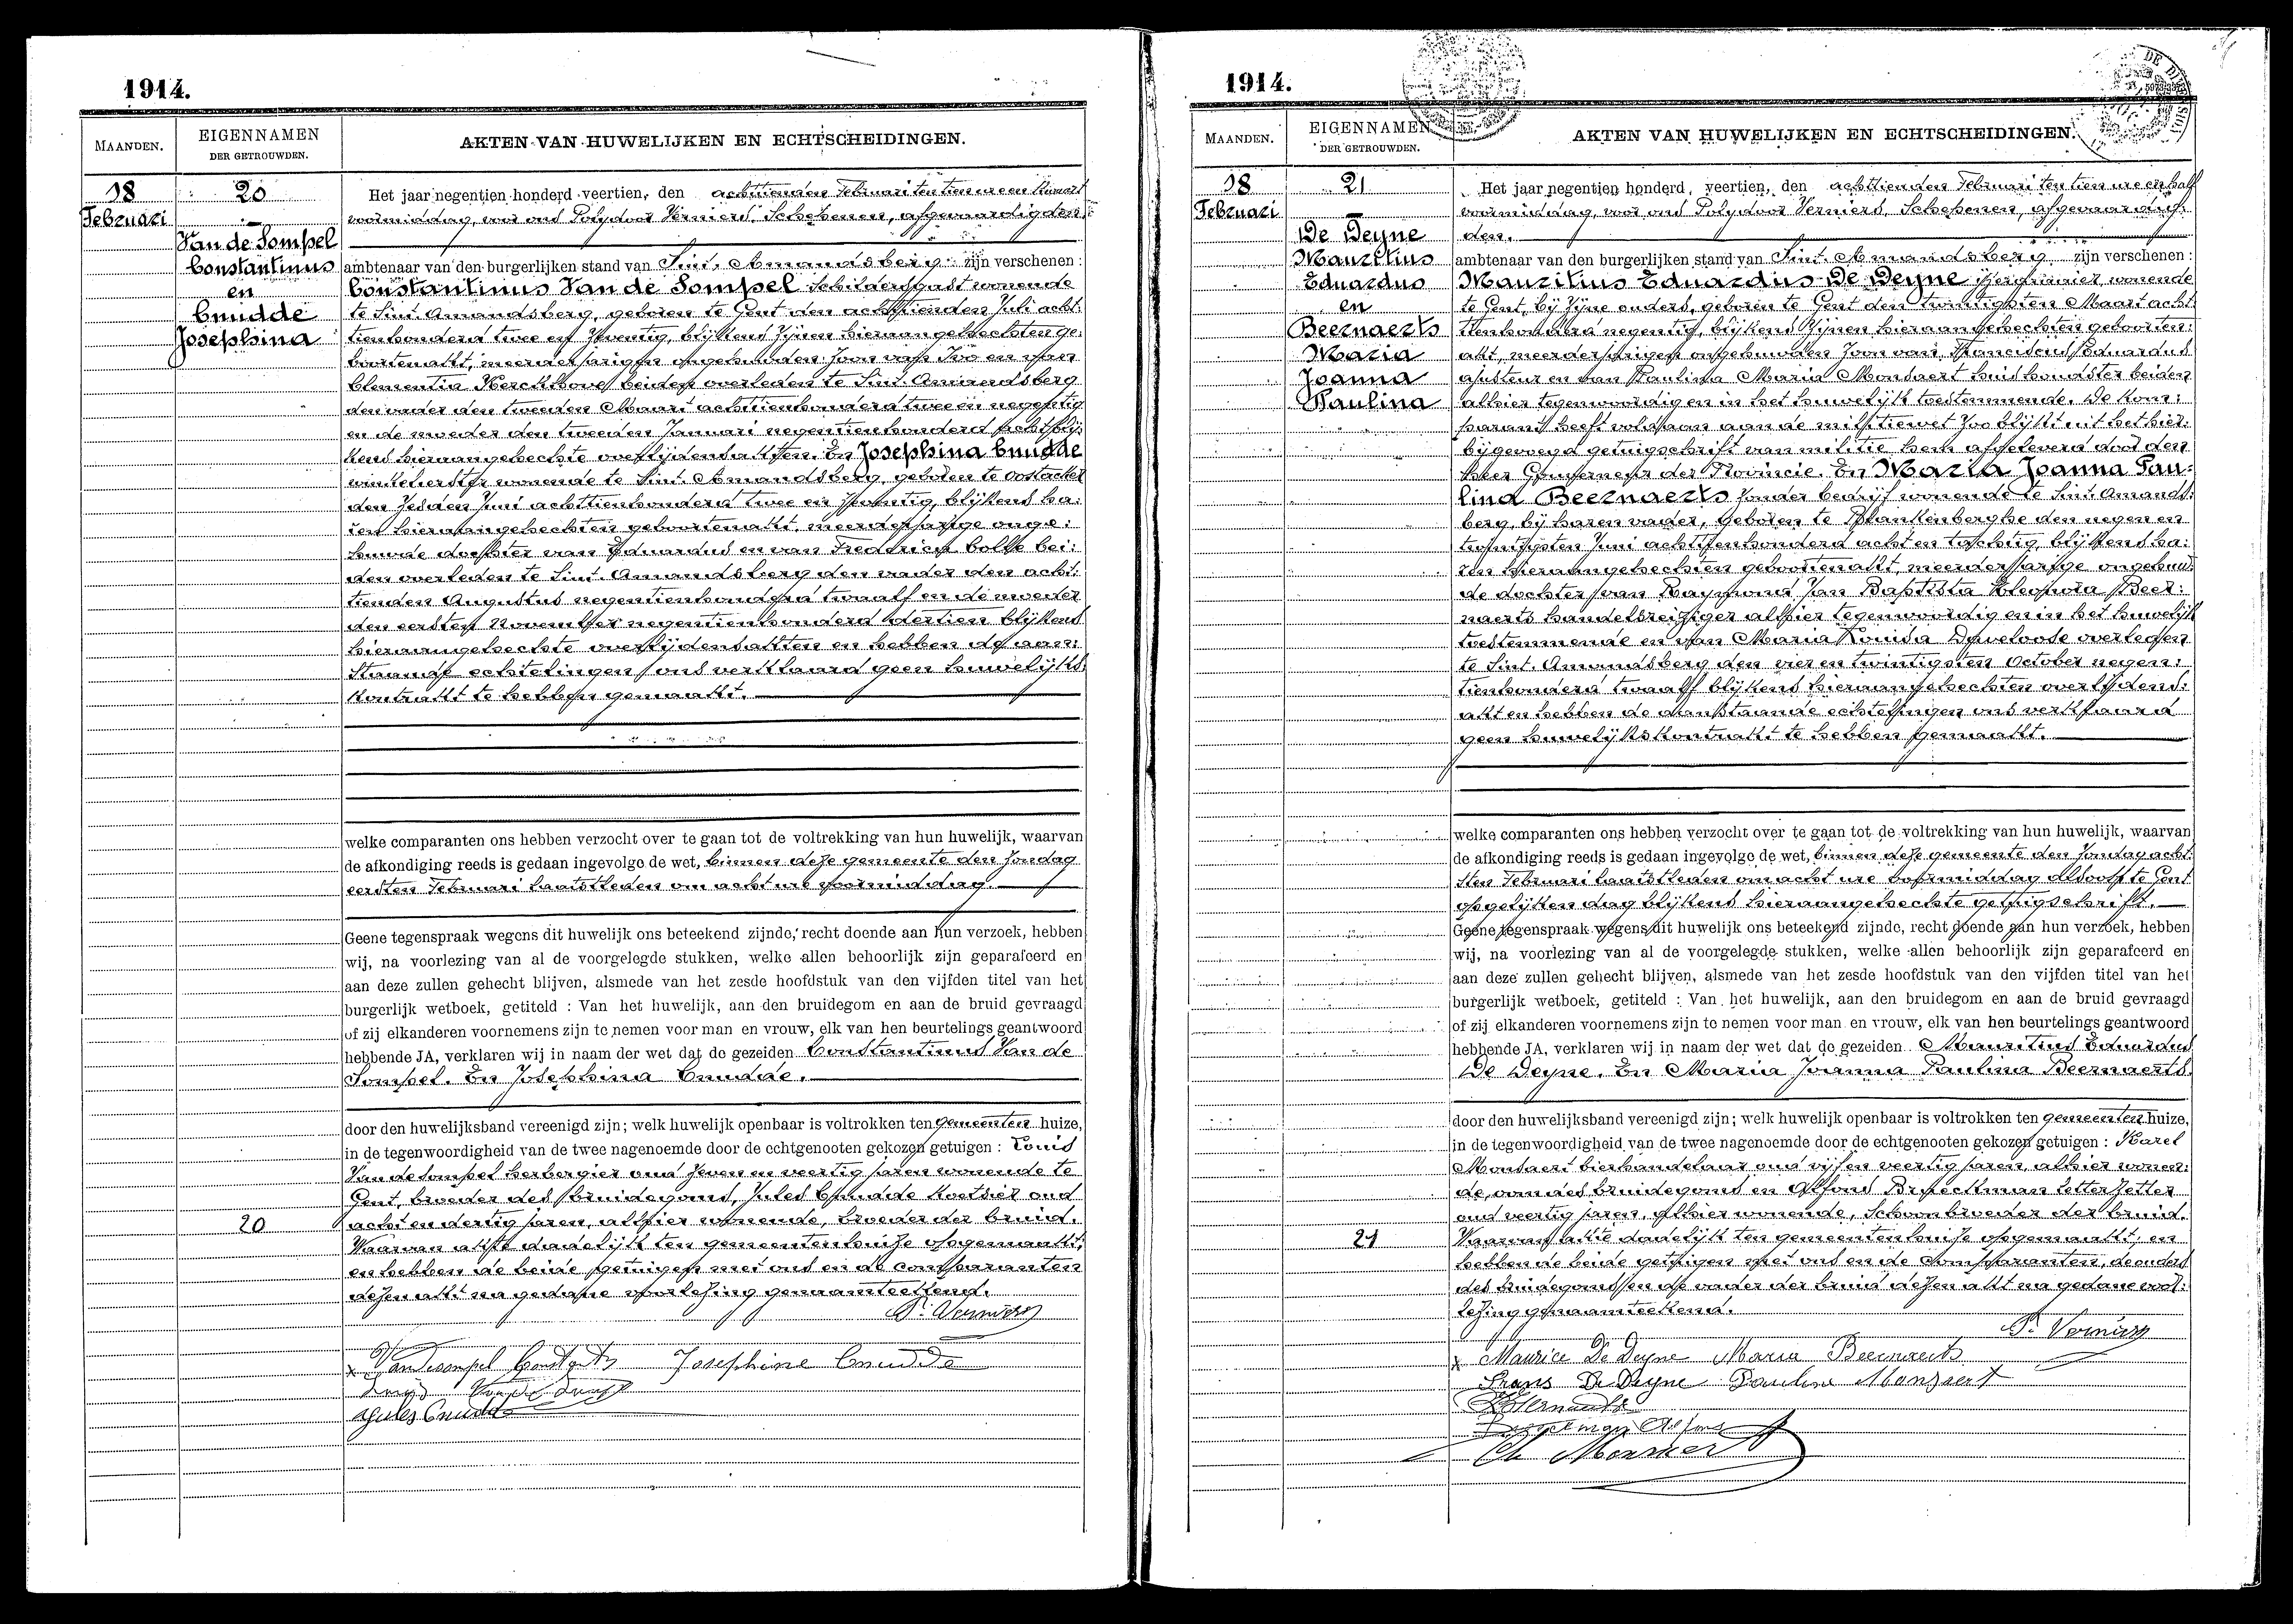 1914.
MAANDEN.
EIGENNAMEN
DER GETROUWDEN.
AKTEN VAN HUWELIJKEN EN ECHTSCHEIDINGEN.
18
Februari
20
Van de Sompel
Constantinus
en
Cnudde
Josephina
Het jaar negentien honderd veertien, den achttienden Februari ten tien ure een kwart
voormiddag, voor ons Polydoor Verniers, Schepenen, afgevaardigden
ambtenaar van den burgerlijken stand van Sint. Amandsberg zijn verschenen :
Constantinus Van de Sompel schildersgast wonende
te Sint. Amandsberg, geboren te Gent den achttienden Juli acht:
tienhonderd twee en zeventig, blijkens zijnen hieraangehechten ge:
boortenakt, meerderjarigen ongehuwden zoon van Ivo en van
Clementia Kerckhove beiden overleden te Sint. Amandsberg
den vader den tweeden Maart achttienhonderd twee en negentig
en de moeder den tweeden Januari negentienhonderd acht blij:
kens hieraangehechte overlijdensakten. En Josephina Cnudde
winkelierster wonende te Sint. Amandsberg, geboren te Oostacker
den zesden Juni achttienhonderd twee en zeventig, blijkens ha:
ren hieraangehechten geboortenakt, meerderjarige onge:
huwde dochter van Eduardus en van Frederica Colle bei:
den overleden te Sint. Amandsberg den vader den acht:
tienden Augustus negentienhonderd twaalf en de moeder
den eersten November negentienhonderd dertien blijkens
hieraangehechte overlijdensakten en hebben de aan:
staande echtelingen ons verklaard geen huwelijks:
kontrakt te hebben gemaakt.
welke comparanten ons hebben verzocht over te gaan tot de voltrekking van hun huwelijk, waarvan
de afkondiging reeds is gedaan ingevolge de wet, binnen deze gemeente den zondag
eersten Februari laatstleden om acht ure voormiddag.
Geene tegenspraak wegens dit huwelijk ons beteekend zijnde, recht doende aan hun verzoek, hebben
wij, na voorlezing van al de voorgelegde stukken, welke allen behoorlijk zijn geparafeerd en
aan deze zullen gehecht blijven, alsmede van het zesde hoofdstuk van den vijfden titel van het
burgerlijk wetboek, getiteld : Van het huwelijk, aan den bruidegom en aan de bruid gevraagd
of zij elkanderen voornemens zijn te nemen voor man en vrouw, elk van hen beurtelings geantwoord
hebbende JA, verklaren wij in naam der wet dat de gezeiden Constantinus Van de
Sompel. En Josephina Cnudde.
door den huwelijksband vereenigd zijn; welk huwelijk openbaar is voltrokken ten gemeenten huize,
in de tegenwoordigheid van de twee nagenoemde door de echtgenooten gekozen getuigen : Louis
Van de Sompel herbergier oud zeven en veertig jaren wonende te
Gent, broeder des bruidegoms, Jules Cnudde koetsier oud
acht en dertig jaren, alhier wonende, broeder der bruid.
20
Waarvan akte dadelijk ten gemeentenhuize opgemaakt;
en hebben de beide getuigen met ons en de comparanten
dezen akt na gedane voorlezing genaamteekend.
P. Verniers
Vandesompel Constant Josephine Cnudde
Jules Cnudde
1914.
MAANDEN.
EIGENNAMEN
DER GETROUWDEN.
AKTEN VAN HUWELIJKEN EN ECHTSCHEIDINGEN.
18
Februari
21
De Deyne
Mauritius
Eduardus
en
Beernaerts
Maria
Joanna
Paulina
Het jaar negentien honderd veertien, den achttienden Februari ten tien ure en half
voormiddag, voor ons Polydoor Verniers, Schepenen, afgevaardig:
den.
ambtenaar van den burgerlijken stand van Sint. Amandsberg zijn verschenen :
Mauritius Eduardus De Deyne wonende
te Gent, bij zijne ouders, geboren te Gent den twintigsten Maart acht:
tienhonderd negentig, blijkens zijnen hieraangehechten geboorten:
akt, meerderjarigen ongehuwden zoon van Franciscus Eduardus
ajusteur en van Paulina Maria Monsaert huishoudster beiden
alhier tegenwoordig en in het huwelijk toestemmende. De kom:
parant heeft voldaan aan de militiewet zoo blijkt uit het hier:
bijgevoegd getuigschrift van militie hem afgeleverd door den
Heer Gouverneur der Provincie. En Maria Joanna Pau:
lina Beernaerts zonder bedrijf wonende te Sint. Amands:
berg, bij haren vader, geboren te Blankenberghe den negen en
twintigsten Juni achttienhonderd acht en tachtig, blijkens ha:
ren hieraangehechten geboortenakt, meerderjarige ongehuw:
de dochter van Raymond Jan Baptista Cleopora Beer:
naerts handelsreiziger alhier tegenwoordig en in het huwelijk
toestemmende en van Maria Louisa Daveloose overleden
te Sint. Amandsberg den vier en twintigsten October negen:
tienhonderd twaalf blijkens hieraangehechten overlijdens:
akt en hebben de aanstaande echtelingen ons verklaard
geen huwelijkskontrakt te hebben gemaakt.
welke comparanten ons hebben verzocht over te gaan tot de voltrekking van hun huwelijk, waarvan
de afkondiging reeds is gedaan ingevolge de wet, binnen deze gemeente den zondag acht:
sten Februari laatstleden om acht ure voormiddag alsook te Gent
opgelijken dag blijkens hieraangehechte getuigschrift.
Geene tegenspraak wegens dit huwelijk ons beteekend zijnde, recht doende aan hun verzoek, hebben
wij, na voorlezing van al de voorgelegde stukken, welke allen behoorlijk zijn geparafeerd en
aan deze zullen gehecht blijven, alsmede van het zesde hoofdstuk van den vijfden titel van het
burgerlijk wetboek, getiteld : Van het huwelijk, aan den bruidegom en aan de bruid gevraagd
of zij elkanderen voornemens zijn te nemen voor man en vrouw, elk van hen beurtelings geantwoord
hebbende JA, verklaren wij in naam der wet dat de gezeiden Mauritius Eduardus
De Deyne. En Maria Joanna Paulina Beernaerts.
door den huwelijksband vereenigd zijn; welk huwelijk openbaar is voltrokken ten gemeenten huize,
in de tegenwoordigheid van de twee nagenoemde door de echtgenooten gekozen getuigen : Karel
Monsaert bierhandelaar oud vijf en veertig jaren, alhier wonen:
de, oom des bruidegoms en Alfons letterzetter
oud veertig jaren, alhier wonende, schoonbroeder der bruid.
21
Waarvan akte dadelijk ten gemeentenhuize opgemaakt; en
hebben de beide getuigen met ons en de comparanten, de ouders
des bruidegoms en de vader der bruid dezen akt na gedane voor:
lezing genaamteekend.
P. Verniers
Maurice De Deyne Maria Beernaerts
Frans De Deyne Pauline Monsaert
Alfons
Ch Monsaert